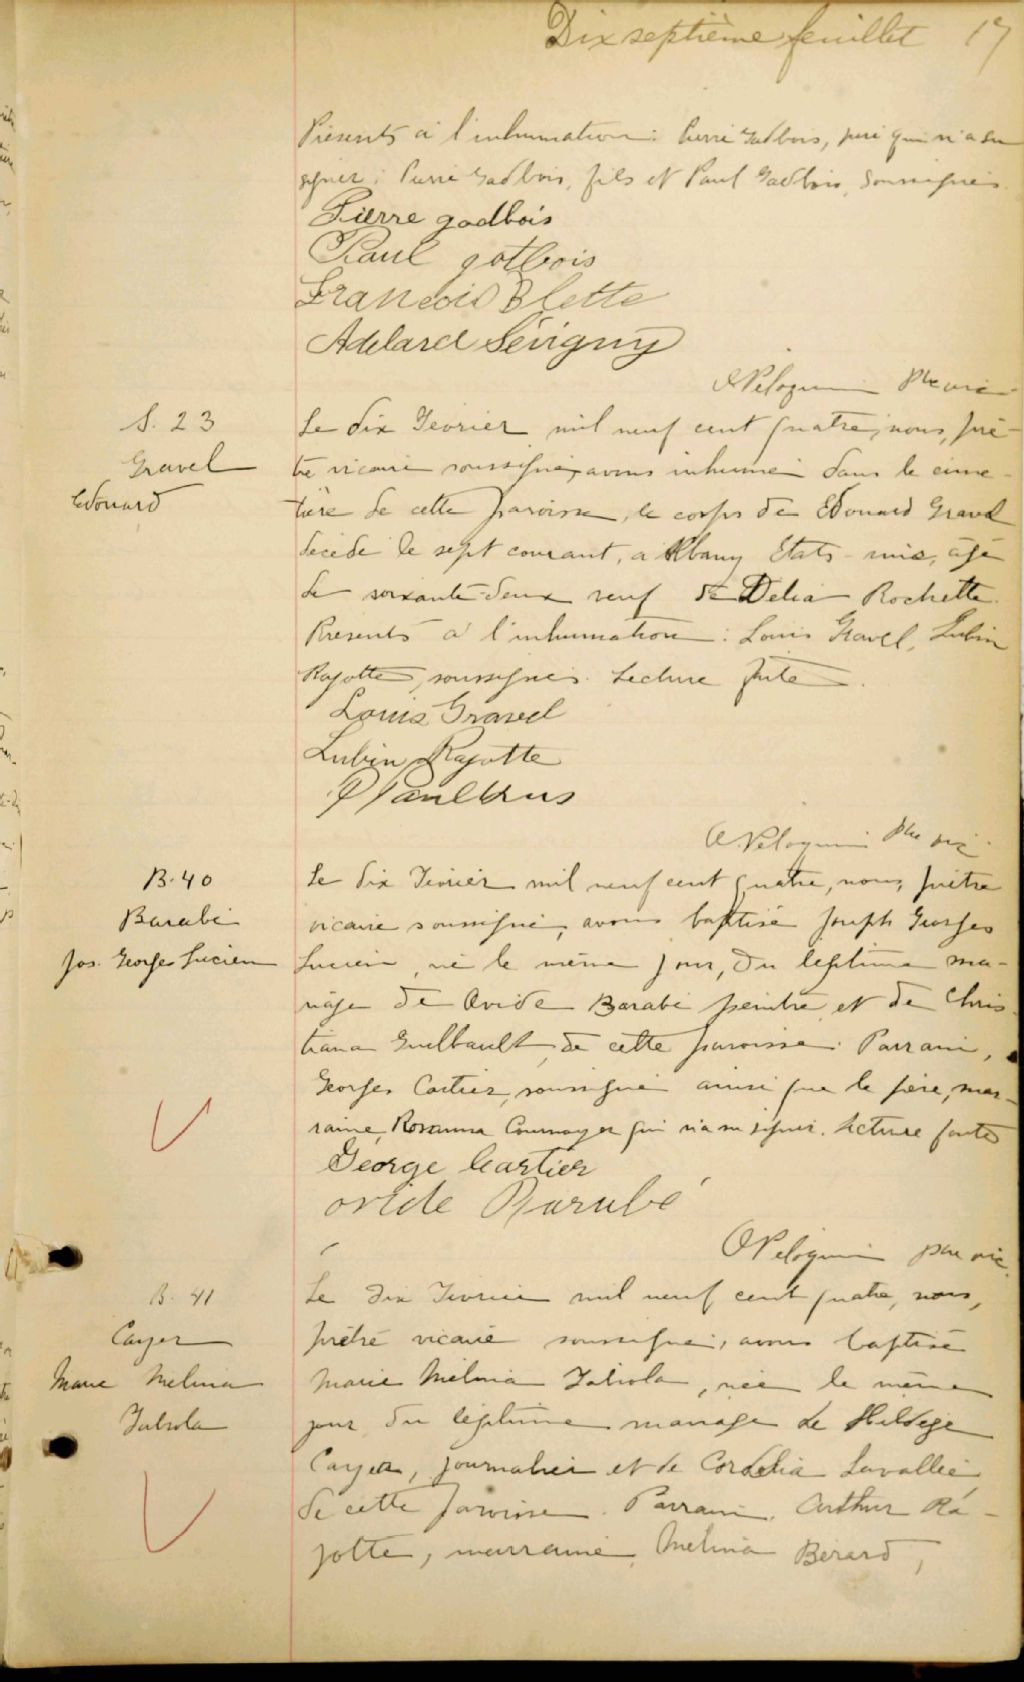 Dix septième feuillet 17
Présents à l'inhumation: Pierre Gadbois, père qui n'a su
signer; Pierre Gadbois, fils et Paul Gadbois, soussignés.
Pierre gadbois
Paul gotbois
Francois Blette
Adelard Sévigny
A Péloquin Ptre vic
S. 23
Gravel
Edouard
Le dix Février mil neuf cent quatre, nous, prê-
tre vicaire soussigné, avons inhumé dans le cime-
tière de cette paroisse, le corps de Edouard Gravel
décédé le sept courant, à Albany Etats-unis, âgé
de soixante-deux veuf de Delia Rochette.
Présents à l'inhumation: Louis Gravel, Lubin
Rajotte, soussignés. Lecture faite.
Louis Gravel
Lubin Rajotte
P Paul Hus
A Péloquin ptre vic
B. 40
Barabé
Jos. Georges Lucien
Le dix Février mil neuf cent quatre, nous, prêtre
vicaire soussigné, avons baptisé Joseph Georges
Lucien, né le même jour, du légitime ma-
riage de Ovide Barabé peintre et de Chris-
tiana Guilbault, de cette paroisse. Parrain,
Georges Cartier, soussigné ainsi que le père, mar-
raine, Rosanna Cournoyer qui n'a su signer. Lecture faite
George Cartier
ovide Barabé
A Péloquin ptre vic.
B. 41
Cayer
Marie Melina
Fabiola
Le dix Février mil neuf cent quatre, nous,
prêtre vicaire soussigné, avons baptisé
Marie Mélina Fabiola, née le même
jour du légitime mariage de Hildège
Cayer, journalier et de Cordélia Lavallée,
de cette paroisse. Parrain, Arthur Ra-
jotte, marraine, Melina Bérard,